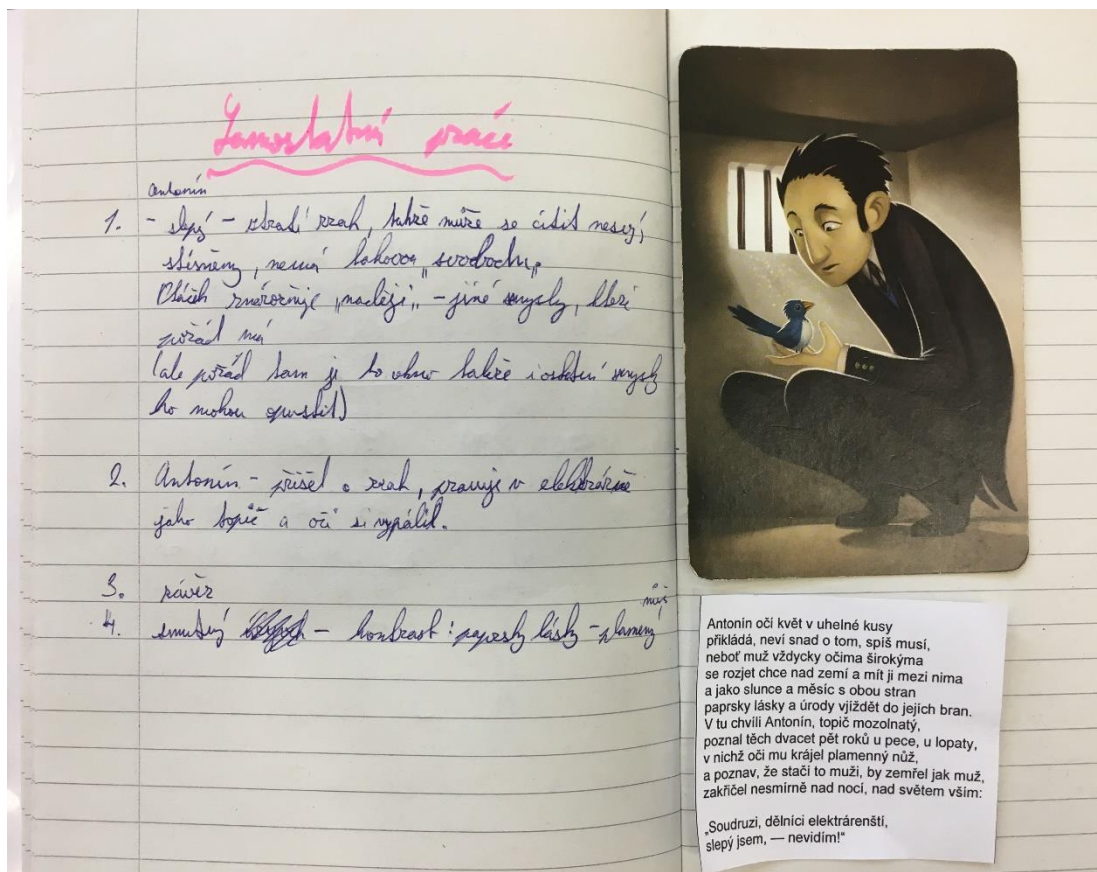 Samostatná práce
Antonín
1. - slepý - ztratí zrak, takže může se cítit
stísněný, nemá takovou „svobodu„
Ptáček znázorňuje „naději„ - jiné smysly, které
pořád má
(ale pořád tam je to okno takže i ostatní smysly
ho mohou opustit)
2. Antonín - přišel o zrak, pracuje v elektrárně
jako topič a oči si vypálil.
3. závěr
nůž
4. smutný - kontrast: paprsky lásky - plamenný
Antonín očí květ v uhelné kusy
přikládá, neví snad o tom, spíš musí,
neboť muž vždycky očima širokýma
se rozjet chce nad zemí a mít ji mezi nima
a jako slunce a měsíc s obou stran
paprsky lásky a úrody vjíždět do jejich bran.
V tu chvíli Antonín, topič mozolnatý,
poznal těch dvacet pět roků u pece, u lopaty,
v nichž oči mu krájel plamenný nůž,
a poznav, že stačí to muži, by zemřel jak muž,
zakřičel nesmírně nad nocí, nad světem vším:
„Soudruzi, dělníci elektrárenští,
slepý jsem, — nevidím!“